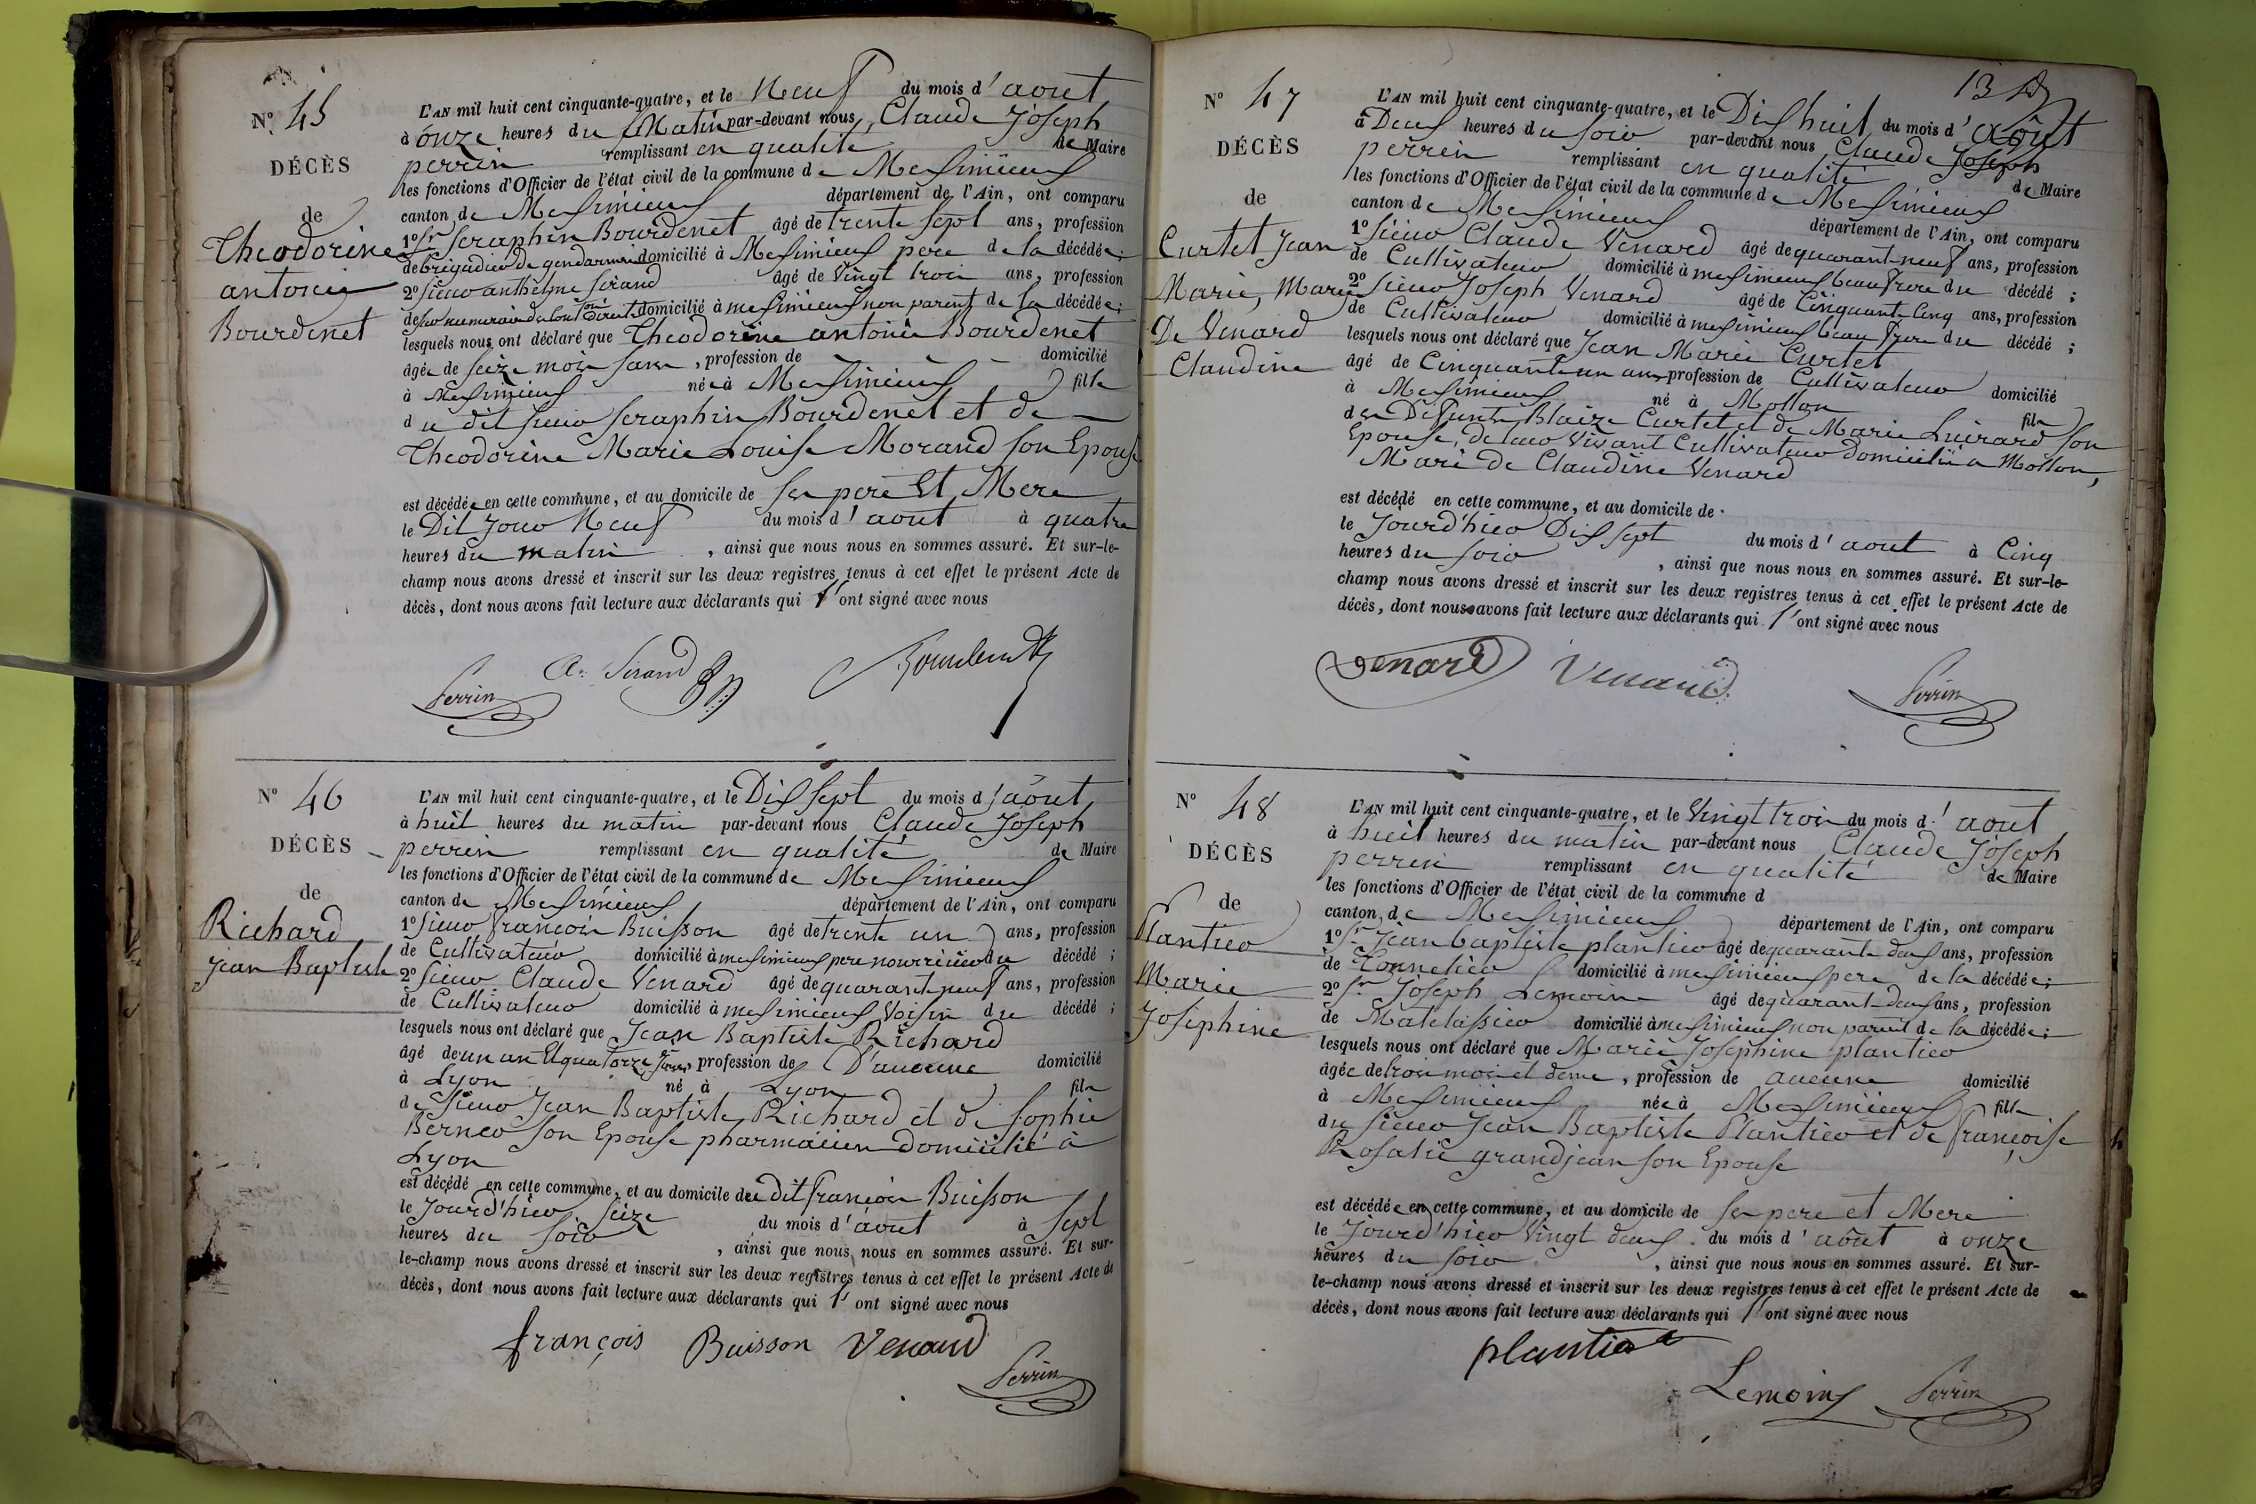 N.o 45
DÉCÈS
de
Theodorine
antonie
Bourdenet
L'AN mil huit cent cinquante-quatre, et le Neuf du mois d'aout
à onze heures du Matin par-devant nous, Claude Joseph
perrin remplissant en qualité de Maire
les fonctions d'Officier de l'état civil de la commune de Meximieux
canton de Meximieux département de l'Ain, ont comparu
1o Sr Seraphin Bourdenet âgé de trente sept ans, profession
de brigadier de gendarmerie domicilié à Meximieux pere de la décédée;
2o Sieur anthelme Sirand âgé de Vingt trois ans, profession
de domicilié à meximieux non parent de la décédée;
lesquels nous ont déclaré que Theodorine antonie Bourdenet
âgée de seize mois sans, profession de domicilié
à Meximieux née à Meximieux fille
du dit sieur Seraphin Bourdenet et de
Theodorine Marie Louise Morand son Epouse
est décédée en cette commune, et au domicile de ses pere Et Mere
le Dit Jour Neuf du mois d'aout à quatre
heures du matin, ainsi que nous nous en sommes assuré. Et sur-le-
champ nous avons dressé et inscrit sur les deux registres tenus à cet effet le présent Acte de
décès, dont nous avons fait lecture aux déclarants qui l'ont signé avec nous
Perrin A. Sirand Bourdenet
No 46
DÉCÈS
de
Richard
Jean Baptiste
L'AN mil huit cent cinquante-quatre, et le Dix sept du mois d'aout
à huit heures du matin par-devant nous Claude Joseph
perrin remplissant en qualité de Maire
les fonctions d'Officier de l'état civil de la commune de Meximieux
canton de Meximieux département de l'Ain, ont comparu
1o Sieur francois Buisson âgé de trente un ans, profession
de Cultivateur domicilié à meximieux pere nourricier du décédé;
2o Sieur Claude Venard âgé de quarante neuf ans, profession
de Cultivateur domicilié à meximieux Voisin du décédé;
lesquels nous ont déclaré que Jean Baptiste Richard
âgé de un an Et quatorze jours, profession de D'aucune domicilié
à Lyon né à Lyon fils
de Sieur Jean Baptiste Richard et de Sophie
Berner son Epouse pharmacien domicilié à
Lyon
est décédé en cette commune, et au domicile du dit francois Buisson
le Jourd'hier seize du mois d'aout à sept
heures du soir, ainsi que nous nous en sommes assuré. Et sur-
le-champ nous avons dressé et inscrit sur les deux registres tenus à cet effet le présent Acte de
décès, dont nous avons fait lecture aux déclarants qui l'ont signé avec nous
françois Buisson Venard
Perrin
13
No 47
DÉCÈS
de
Curtet Jean
Marie, Marie
De Venard
Claudine
L'AN mil huit cent cinquante-quatre, et le Dix huit du mois d'août
à Deux heures du soir par-devant nous Claude Joseph
perrin remplissant en qualité de Maire
les fonctions d'Officier de l'état civil de la commune de Meximieux
canton de Meximieux département de l'Ain, ont comparu
1o Sieur Claude Venard âgé de quarant-neuf ans, profession
de Cultivateur domicilié à meximieux beau frere du décédé;
2o Sieur Joseph Venard âgé de Cinquante Cinq ans, profession
de Cultivateur domicilié à meximieux beau frere du décédé;
lesquels nous ont déclaré que Jean Marie Curtet
âgé de Cinquante un ans profession de Cultivateur domicilié
à Meximieux né à Mollon fils
des Defunts Blaize Curtet et de Marie Luirard son
Epouse, de leur Vivant Cultivateur domicilié a Mollon,
Mari de Claudine Venard
est décédé en cette commune, et au domicile de
le Jourd'hier Dix sept du mois d'aout à Cinq
heures du soir, ainsi que nous nous en sommes assuré. Et sur-le-
champ nous avons dressé et inscrit sur les deux registres tenus à cet effet le présent Acte de
décès, dont nous avons fait lecture aux déclarants qui l'ont signé avec nous
Venard Venard Perrin
No 48
DÉCÈS
de
Plantier
Marie
Josephine
L'AN mil huit cent cinquante-quatre, et le Vingt trois du mois d'aout
à huit heures du matin par-devant nous Claude Joseph
perrin remplissant en qualité de Maire
les fonctions d'Officier de l'état civil de la commune d
canton de Meximieux département de l'Ain, ont comparu
1o Sr Jean baptiste plantier âgé de quarante deux ans, profession
de Tonnelier domicilié à meximieux pere de la décédée;
2o Sr Joseph Lemoine âgé de quarant deux ans, profession
de Matelassier domicilié à meximieux non parent de la décédée;
lesquels nous ont déclaré que Marie Josephine plantier
âgée de trois mois et demie, profession de aucune domicilié
à Meximieux née à Meximieux fille
du Sieur Jean Baptiste Plantier et de françoise
Rosalie grandjean son Epouse
est décédée en cette commune, et au domicile de ses pere et Mere
le Jourd'hier Vingt deux du mois d'aout à onze
heures du soir, ainsi que nous nous en sommes assuré. Et sur-
le-champ nous avons dressé et inscrit sur les deux registres tenus à cet effet le présent Acte de
décès, dont nous avons fait lecture aux déclarants qui l'ont signé avec nous
plantier
Lemoine Perrin